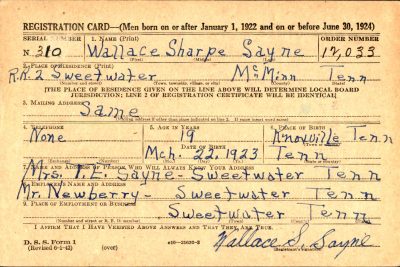 REGISTRATION CARD—(Men born on or after January 1, 1922 and on or before June 30, 1924)
SERIAL NUMBER 1. NAME (Print) ORDER NUMBER
N 310 Wallace Sharpe Sayne 12,033
2. PLACE OF RESIDENCE (Print)
R.R.2 Sweetwater McMinn Tenn
(Town, township, village, or city) (County) (State)
[THE PLACE OF RESIDENCE GIVEN ON THE LINE ABOVE WILL DETERMINE LOCAL BOARD
JURISDICTION; LINE 2 OF REGISTRATION CERTIFICATE WILL BE IDENTICAL]
3. MAILING ADDRESS
Same
[Mailing address if other than place indicated on line 2. If same insert word same]
4. TELEPHONE 5. AGE IN YEARS 6. PLACE OF BIRTH
None 19 Knoxville Tenn
DATE OF BIRTH
Mch. 22, 1923 Tenn
7. NAME AND ADDRESS OF PERSON WHO WILL ALWAYS KNOW YOUR ADDRESS
Mrs. T. E. Sayne - Sweetwater Tenn
8. EMPLOYER'S NAME AND ADDRESS
Mr. Newberry - Sweetwater Tenn
9. PLACE OF EMPLOYMENT OR BUSINESS
Sweetwater Tenn
(Number and street or R. F. D. number) (Town) (County) (State)
I AFFIRM THAT I HAVE VERIFIED ABOVE ANSWERS AND THAT THEY ARE TRUE.
D. S. S. Form 1
(Revised 6-9-42) (over) Wallace S. Sayne
(Registrant's signature)